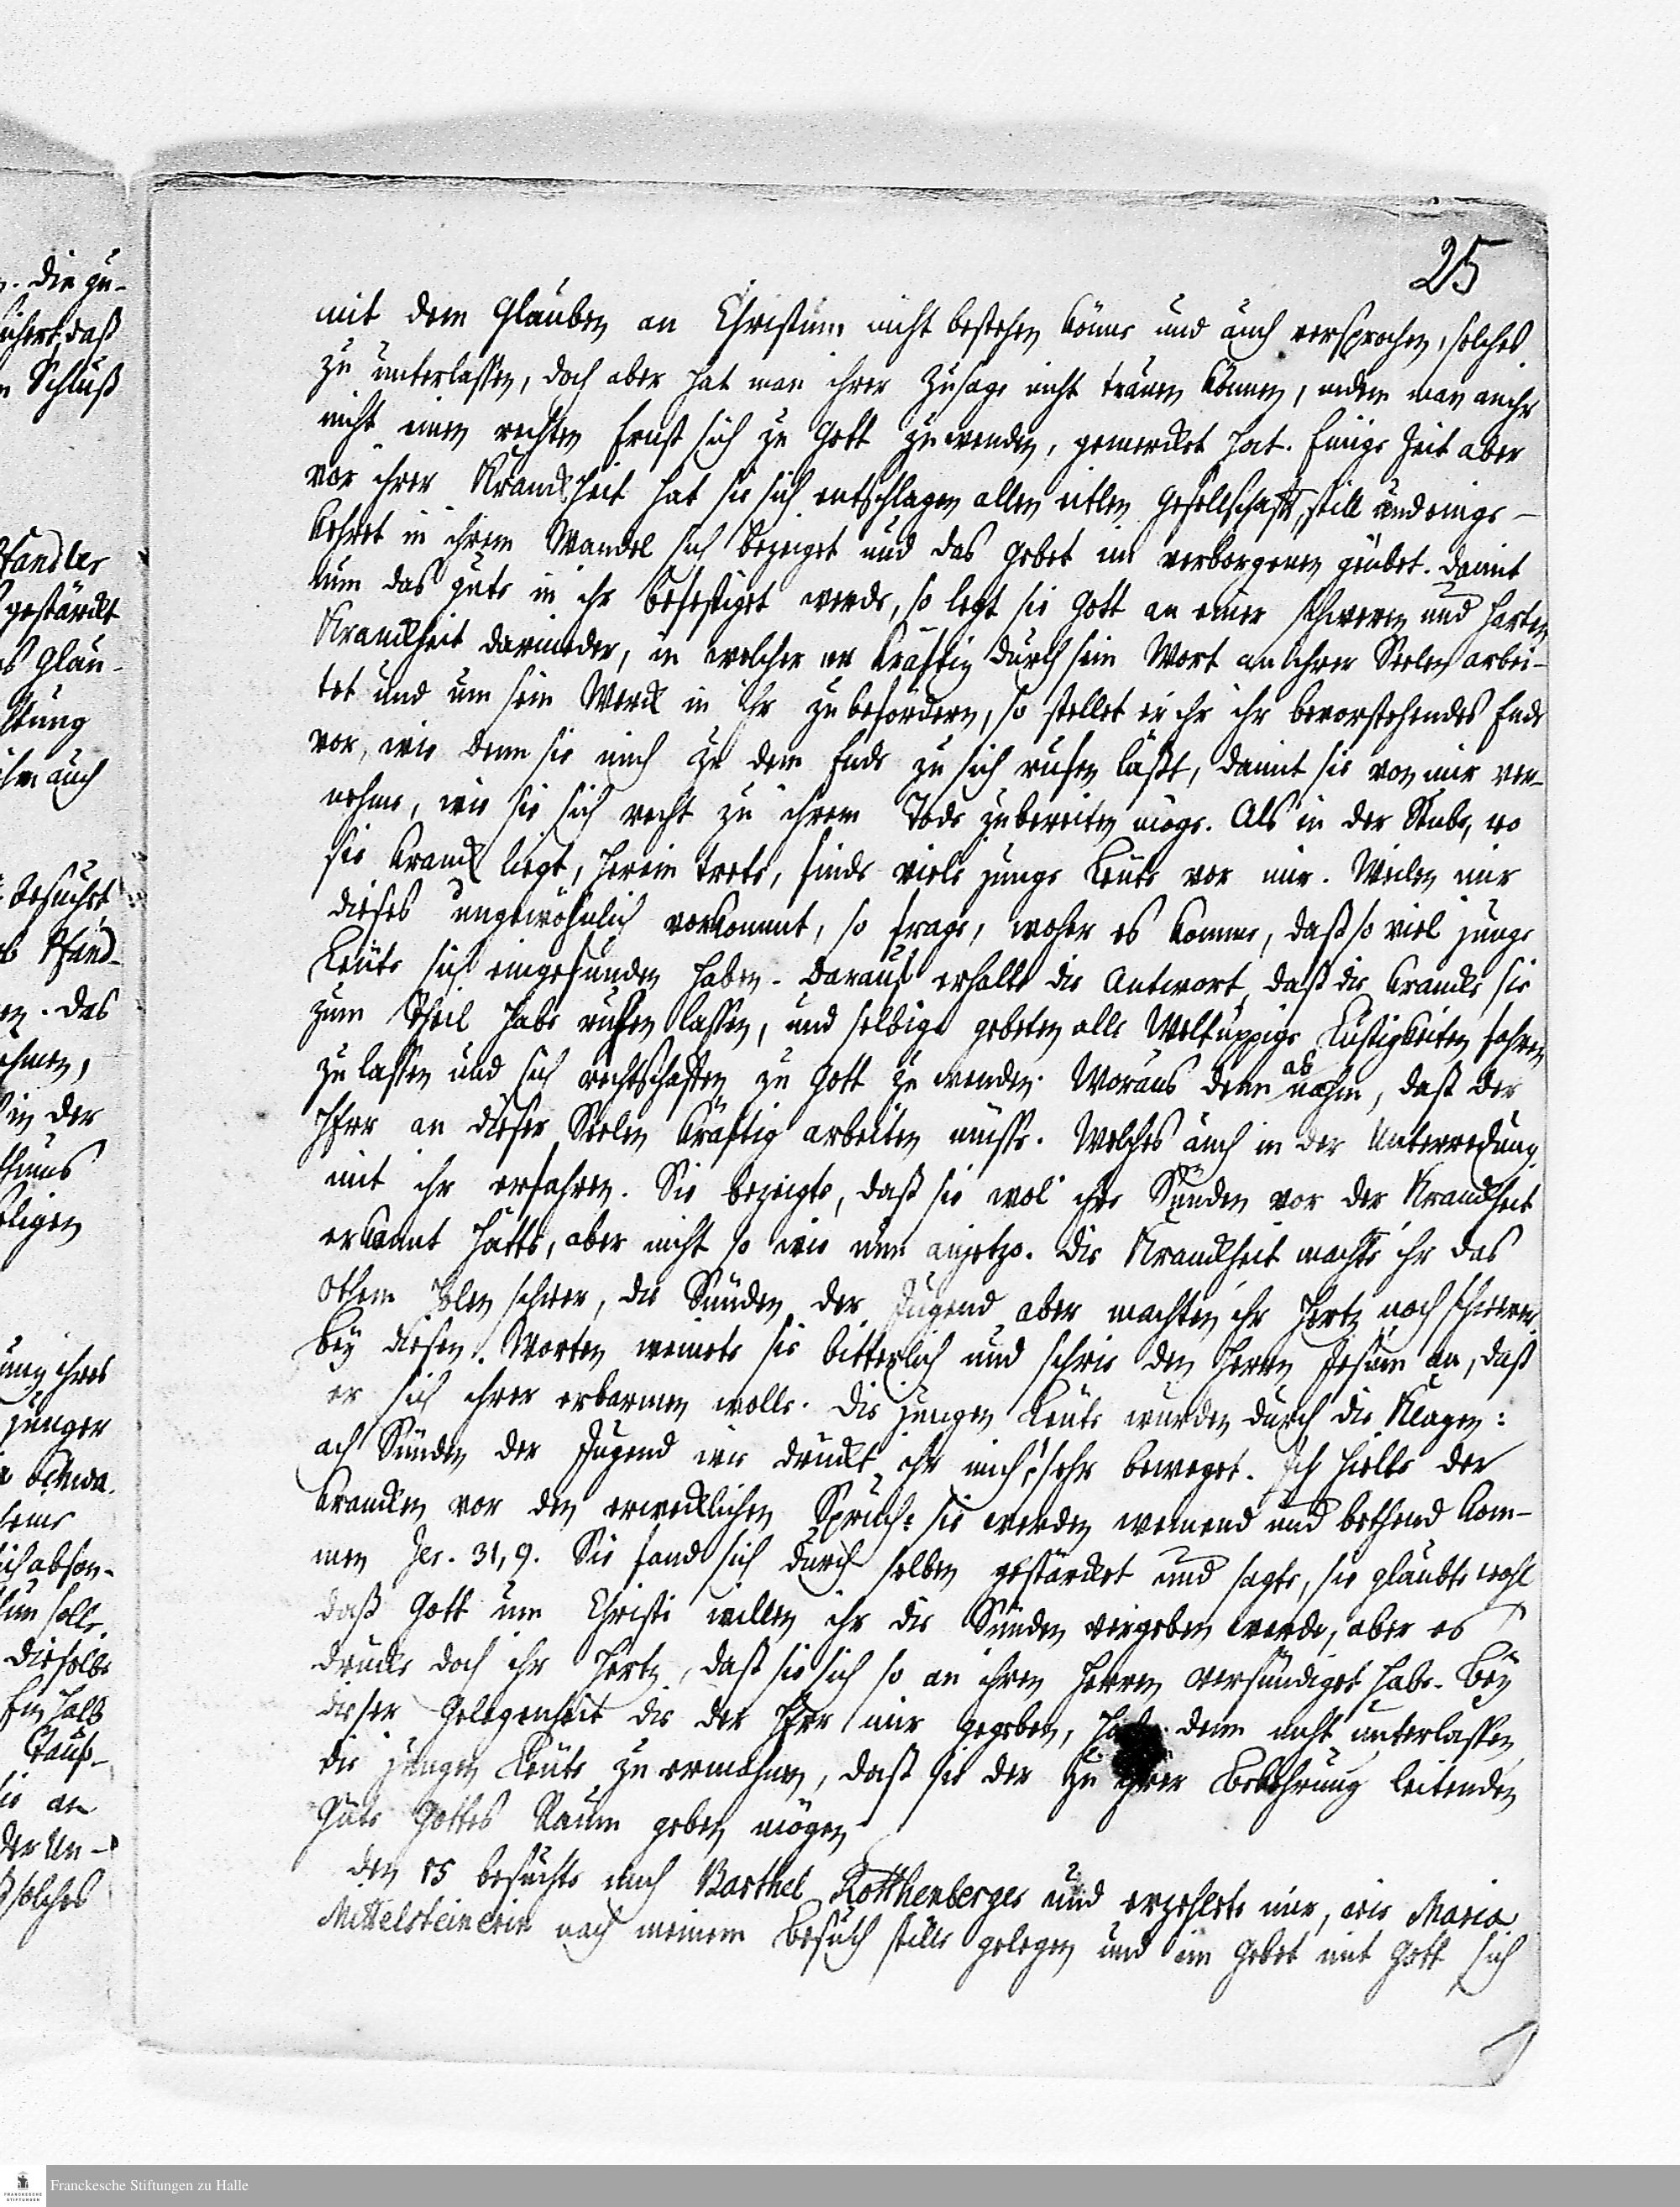 25
mit dem Glauben an Christum nicht bestehen könne und auch versprochen, solches
zu unterlassen, doch aber hat man ihrer Zusage nicht trauen können, indem man an ihr
nicht einen rechten Ernst sich zu Gott zu wenden, gemercket hat. Einige Zeit aber
vor ihrer Kranckheit hat sie sich entschlagen allen eitlen Gesellschafft, still und einge-
kehret in ihrem Wandel sich bezeiget und das Gebet im verborgenen geübet. Damit
nun das gute in ihr befestiget werde, so legt sie Gott an einer schweren und harten
Kranckheit darnieder, in welcher er kräftig durch sein Wort an ihrer Seelen arbei-
tet und um sein Werck in ihr zu befördern, so stellet er ihr ihr bevorstehendes Ende
vor, wie denn sie mich zu dem Ende zu sich rufen läßt, damit sie von mir ver-
nehme, wie sie sich recht zu ihrem Tode zubereiten möge. Als in der Stube, wo
sie kranck liegt, herein trete, finde viele junge Leute vor mir. Weilen mir
dieses ungewöhnlich vorkommt, so frage, woher es komme, daß so viel junge
Leute sich eingefunden haben. Darauf erhalte die Antwort, daß die Krancke sie
zum Theil habe rufen lassen, und selbige gebeten alle Weltüppige Lustigkeiten fahren
zu lassen und sich rechtschaffen zu Gott zu wenden. Woraus denn abnahm, daß der
HErr an dieser Seelen kräftig arbeiten müsse. Welches auch in der Unterredung
mit ihr erfahren. Sie bezeigte, daß sie wol ihre Sünden vor der Kranckheit
erkannt hätte, aber nicht so wie nun anjetzo. Die Kranckheit machte ihr das
Othem holen schwer, die Sünden der Jugend aber machten ihr Hertz noch schwerer.
Bey diesen Worten weinete sie bitterlich und schrie den Herrn Jesum an, daß
er sich ihrer erbarmen wolle. Die jungen Leute wurden durch die Klagen:
ach Sünden der Jugend wie drückt ihr mich! sehr beweget. Ich hielte der
Krancken vor den erwecklichen Spruch: sie werden weinend und bethend kom-
men Jer. 31, 9. Sie fand sich durch selben gestärcket und sagte, sie glaubte wohl
daß Gott um Christi willen ihr die Sünden vergeben werde, aber es
drücke doch ihr Hertz, daß sie sich so an ihren Herren versündiget habe. Bey
dieser Gelegenheit die der HErr mir gegeben, denn nicht unterlassen
die jungen Leute zu ermahnen, daß sie der zu ihrer Bekehrung leitenden
Güte Gottes Raum geben mögen
den 15 besuchte mich Barthel Rotthenberger und erzehlete mir, wie Maria
Mittelsteinerin nach meinem Besuch stille gelegen und im Gebet mit Gott sich
. Die zu-
daß
Schluß
gestärckt
Glau-
auch
besuchet
. Das
in der
ihres
junger
abson-
solle
dieselbe
Tauf-
an
der Un-
solches
Franckesche Stiftungen zu Halle
FRANCKESCHE
STIFTUNGEN